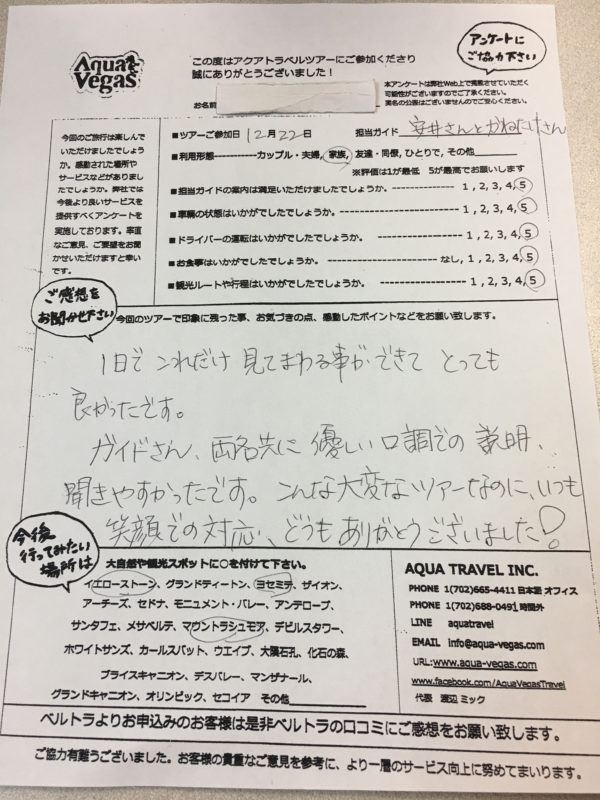 Aqua Vegas
この度はアクアトラベルツアーにご参加くださり
誠にありがとうございました！
アンケートに
ご協力下さい
本アンケートは弊社Web上で掲載させていただく
可能性がございますのでご了承ください。
実名の公表はございませんのでご安心ください。
お名前
今回のご旅行は楽しんで
いただけましたでしょう
か。感動された場所や
サービスなどがありまし
たでしょうか。弊社では
今後より良いサービスを
提供すべくアンケートを
実施しております。率直
なご意見、ご要望をお聞
かせいただけますと幸い
です。
■ツアーご参加日 12月22日 担当ガイド 安井さんとかねたけさん
■利用形態-----------カップル・夫婦, 家族, 友達・同僚, ひとりで, その他
※評価は1が最低 5が最高でお願いします
■担当ガイドの案内は満足いただけましたでしょうか。 1, 2, 3, 4, 5
■車輌の状態はいかがでしたでしょうか。 1, 2, 3, 4, 5
■ドライバーの運転はいかがでしたでしょうか。 1, 2, 3, 4, 5
■お食事はいかがでしたでしょうか。 なし, 1, 2, 3, 4, 5
■観光ルートや行程はいかがでしたでしょうか。 1, 2, 3, 4, 5
ご感想を
お聞かせ下さい
今回のツアーで印象に残った事、お気づきの点、感動したポイントなどをお願い致します。
1日で これだけ 見てまわる事ができて とっても
良かったです。
ガイドさん、両名共に 優しい口調での 説明、
聞きやすかったです。こんな大変なツアーなのに、いつも
笑顔での対応、どうもありがとうございました！
今後
行ってみたい
場所は
大自然や観光スポットに○を付けて下さい。
イエローストーン、グランドティートン、ヨセミテ、ザイオン、
アーチーズ、セドナ、モニュメント・バレー、アンテロープ、
サンタフェ、メサベルテ、マウントラシュモア、デビルスタワー、
ホワイトサンズ、カールスバット、ウエイブ、大隕石孔、化石の森、
ブライスキャニオン、デスバレー、マンザナール、
グランドキャニオン、オリンピック、セコイア その他
AQUA TRAVEL INC.
PHONE 1(702)665-4411 日本語 オフィス
PHONE 1(702)688-0491 時間外
LINE aquatravel
EMAIL info@aqua-vegas.com
URL:www.aqua-vegas.com
www.facebook.com/AquaVegasTravel
代表 渡辺 ミック
ベルトラよりお申込みのお客様は是非ベルトラの口コミにご感想をお願い致します。
ご協力有難うございました。お客様の貴重なご意見を参考に、より一層のサービス向上に努めてまいります。